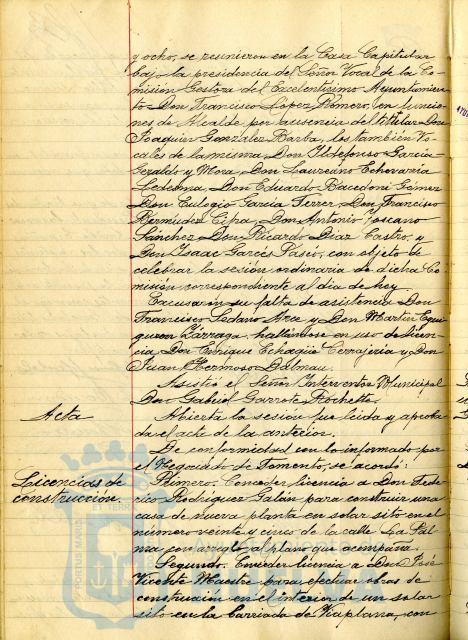 y ocho, se reunieron en la Casa Capitular
bajo la presidencia del Señor Vocal de la Co-
misión Gestora del Excelentísimo Ayuntamien-
to Don Francisco López Romero, en funcio-
nes de Alcalde por ausencia del titular Don
Joaquín González Barba, los también Vo-
cales de la misma Don Ildefonso García
Geraldo y Mora, Don Laureano Echevarría
Ledesma, Don Eduardo Bacedoni Gómez
Don Eulogio García Ferrer, Don Francisco
Bermúdez Don Antonio Toscano
Sánchez Don Ricardo Díaz Castro, y
Don Isaac Garcés Pasio, con objeto de
celebrar la sesión ordinaria de dicha Co-
misión correspondiente al día de hoy.
Excusaron su falta de asistencia Don
Francisco Sedano Arce y Don Martín Egui-
guren Zárraga, hallándose en uso de licen-
cia Don Enrique Echagüe Cerrajería y Don
Juan Hermoso Dalmau.
Asistió el Señor Interventor Municipal
Don Gabriel Garrote Rochette.
Acta
Abierta la sesión fue leída y aproba-
da el acta de la anterior.
De conformidad con lo informado por
el Negociado de Fomento, se acordó:
Licencias de
construcción.
Primero. Conceder licencia a Don Fede-
rico Rodríguez Galán para construir una
casa de nueva planta en solar sito en el
número veinte y cinco de la calle La Pal-
ma con arreglo al plano que acompaña.
Segundo. Conceder licencia a Don José
Vicente Maestre para efectuar obras de
construcción en el interior de un solar
sito en la Barriada de Viaplana, con
PORTUS MARIS
ET TERRA